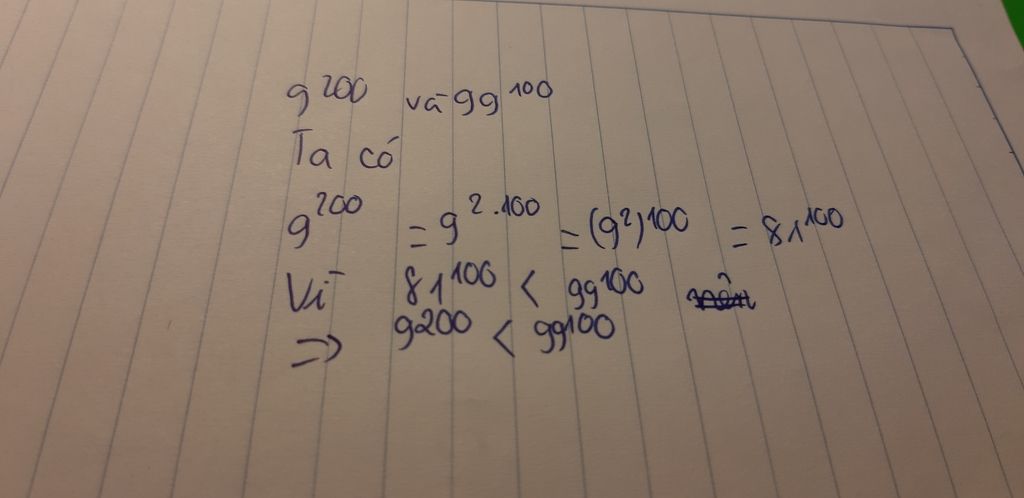 9²⁰⁰ và 99¹⁰⁰
Ta có
9²⁰⁰ = 9²·¹⁰⁰ = (9²)¹⁰⁰ = 81¹⁰⁰
Vì 81¹⁰⁰ < 99¹⁰⁰
=> 9²⁰⁰ < 99¹⁰⁰